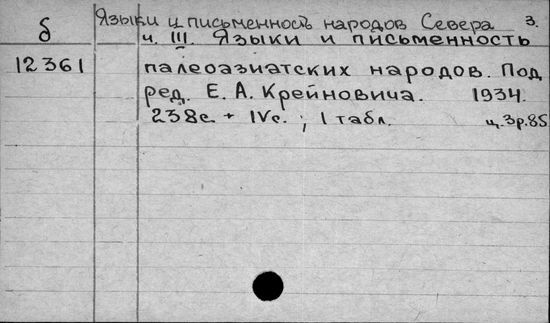 Языки и письменность народов Севера 3.
б ч. III. Языки и письменность
12361 палеоазиатских народов. Под
ред. Е. А. Крейновича. 1934.
238с. + IVс. ; 1 табл. ц.3р.85